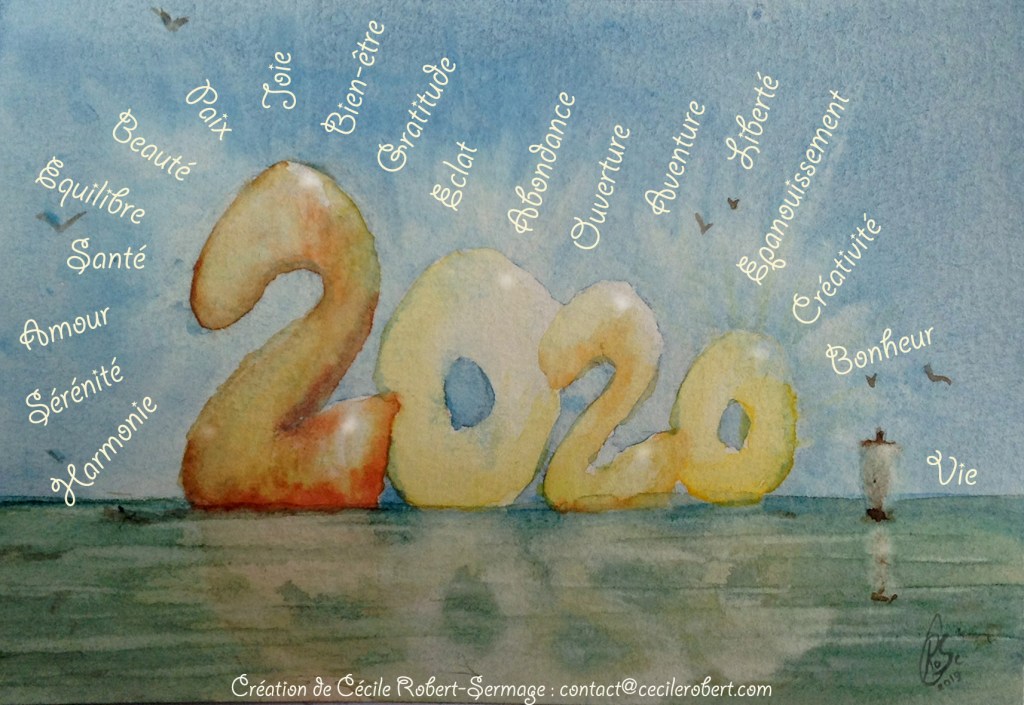 Harmonie
Sérénité
Amour
Santé
Equilibre
Beauté
Paix
Joie
Bien-être
Gratitude
Eclat
Abondance
Ouverture
Aventure
Liberté
Epanouissement
Créativité
Bonheur
Vie
2020
2019
Création de Cécile Robert-Sermage : contact@cecilerobert.com